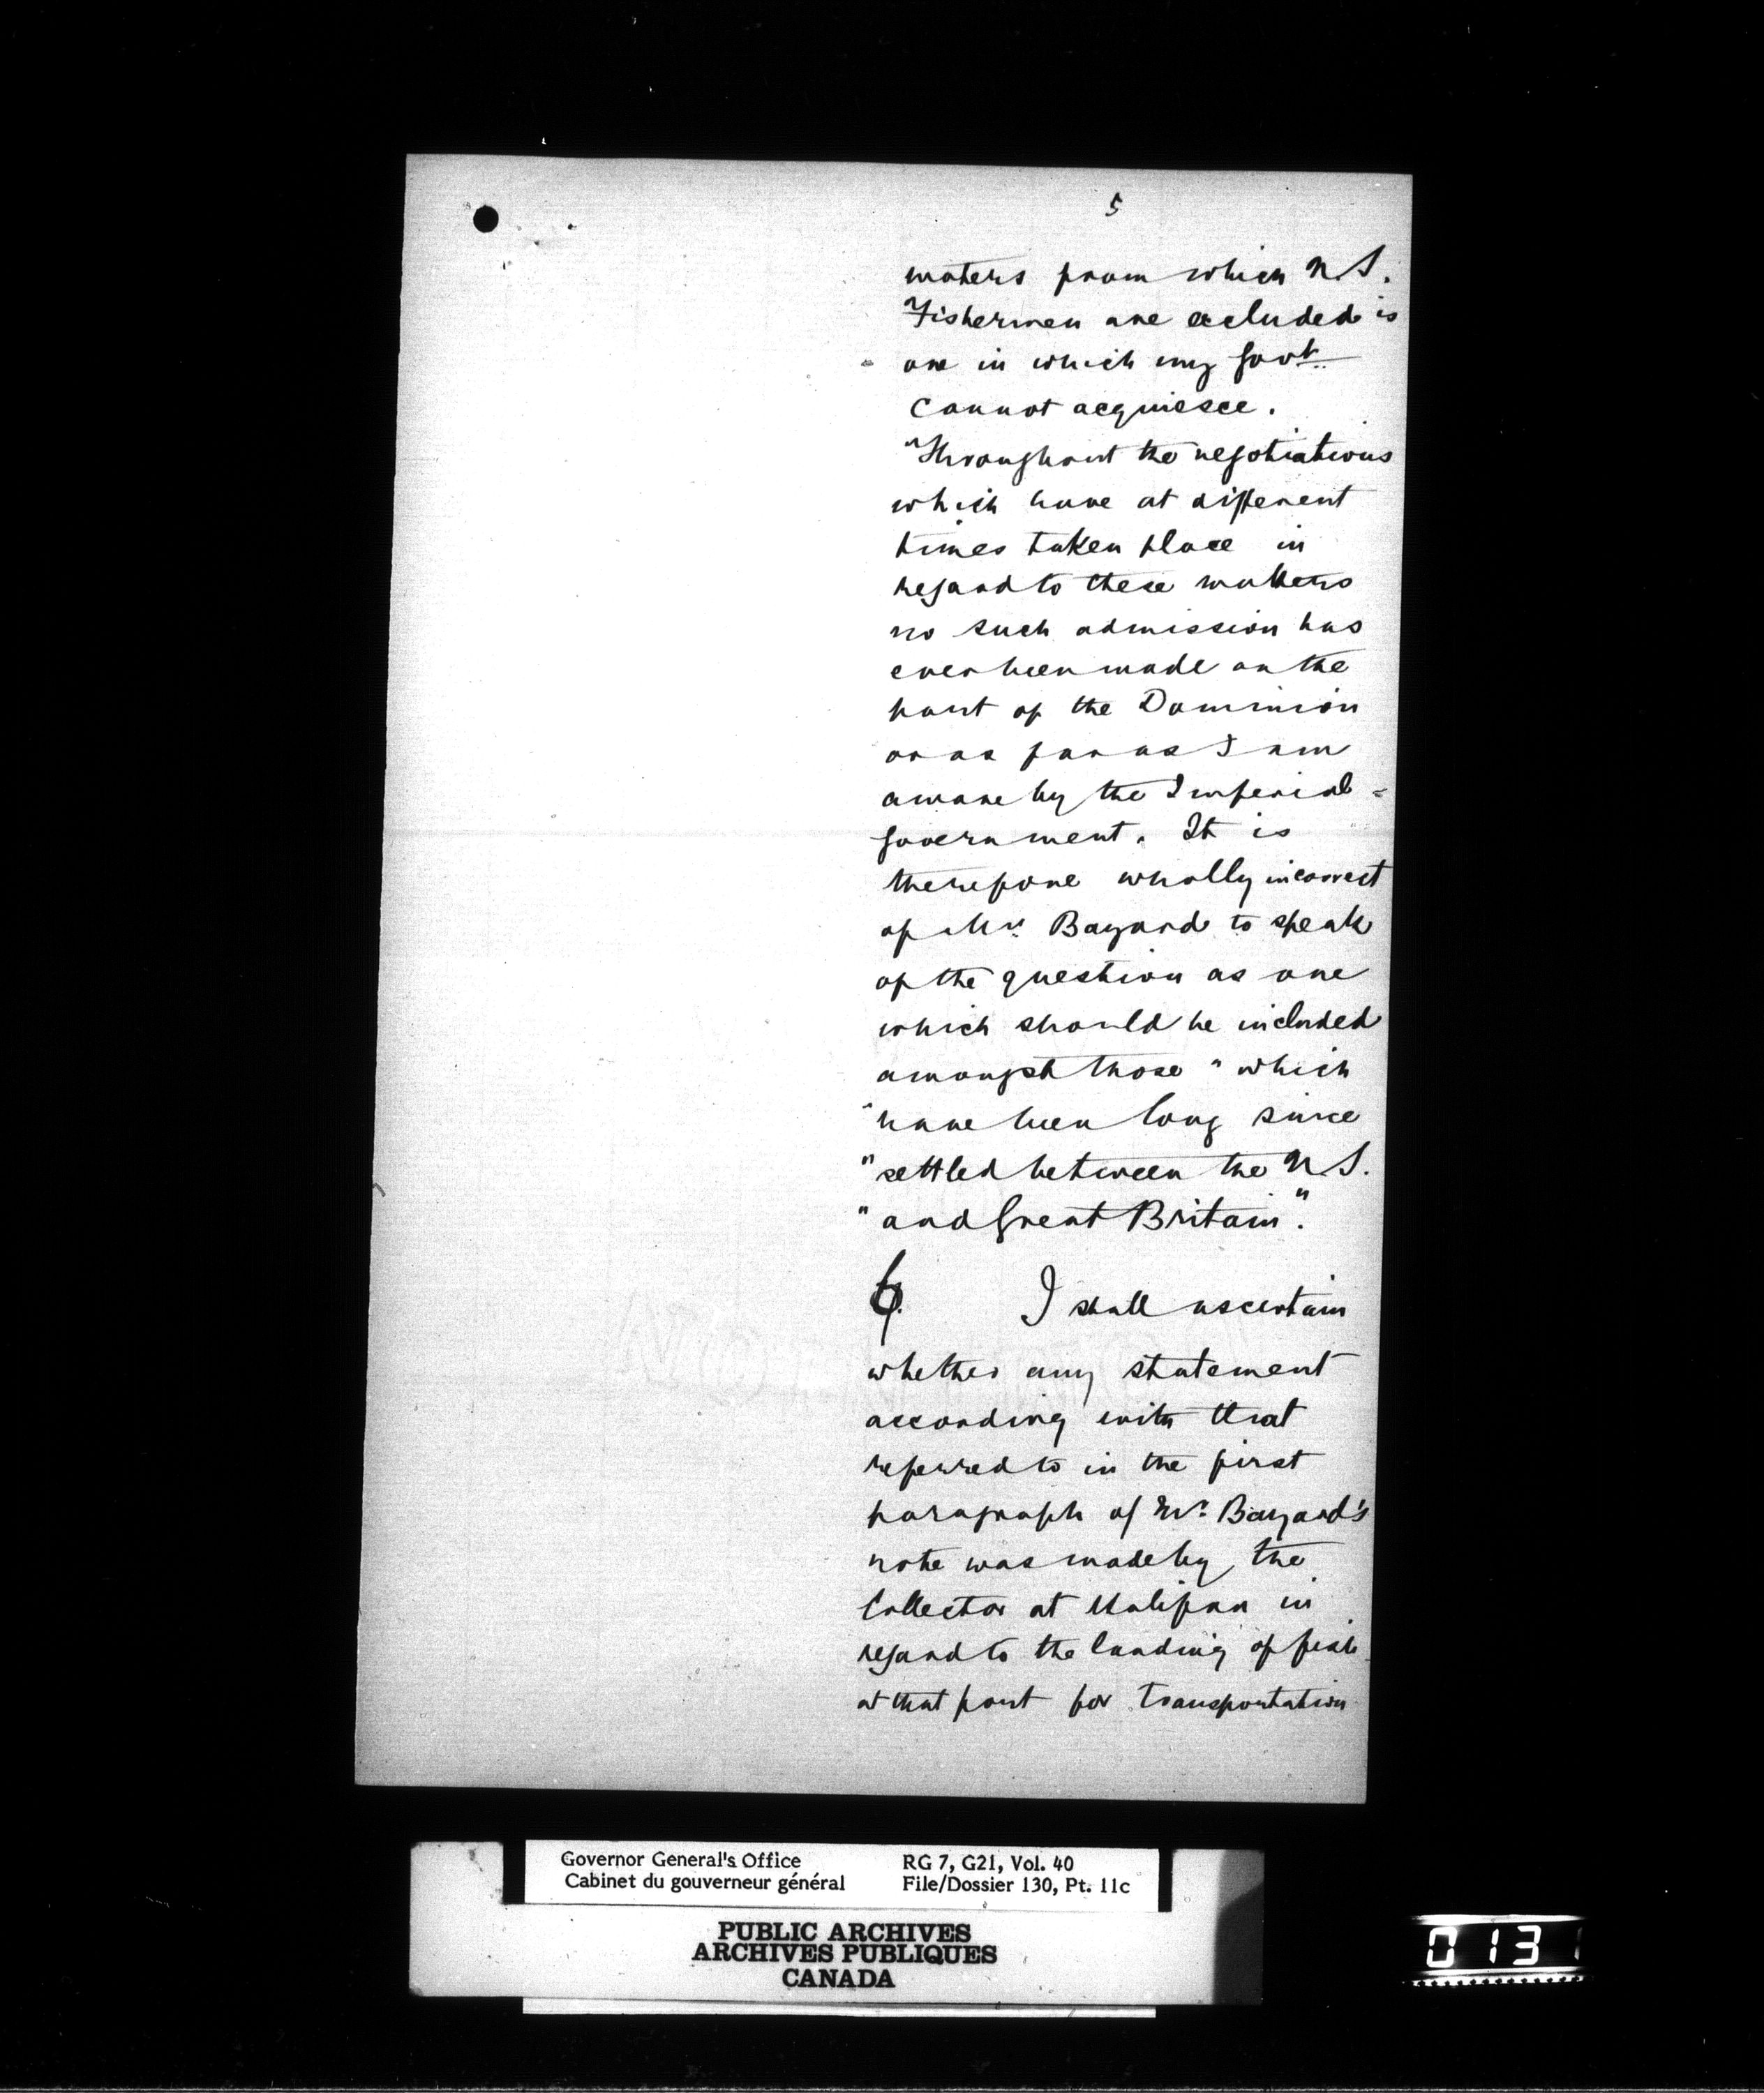 5
waters from which U.S.
Fishermen are excluded is
one in which my Govt.
cannot acquiesce.
"Throughout the negotiations
which have at different
times taken place in
regard to these matters
no such admission has
ever been made on the
part of the Dominion
or as far as I am
aware by the Imperial
Government. It is
therefore wholly incorrect
of Mr. Bayard to speak
of the question as one
which should be included
amongst those "which
"have been long since
"settled between the U.S.
"and Great Britain".
6. I shall ascertain
whether any statement
according with that
referred to in the first
paragraph of Mr. Bayard's
note was made by the
Collector at Halifax in
regard to the landing of fish
at that port for transportation
Governor General's Office
Cabinet du gouverneur général
RG 7, G21, Vol. 40
File/Dossier 130, Pt. 11c
PUBLIC ARCHIVES
ARCHIVES PUBLIQUES
CANADA
013